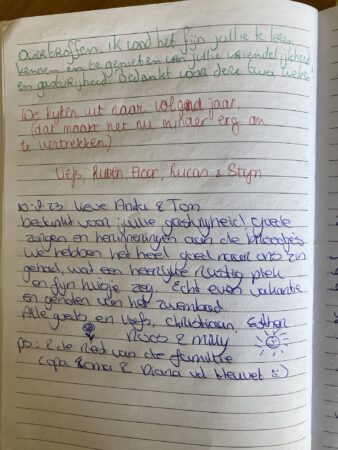 overtroffen, ik vond het fijn jullie te leren
kennen en te genieten van jullie vriendelijkheid
en gastvrijheid. Bedankt voor deze twee weken!
We kijken uit naar volgend jaar,
(dat maakt het nu minder erg om
te vertrekken)
Liefs, Robin, Floor, Lucas & Stijn
10-8-23 Lieve & Tom
bedankt voor jullie gastvrijheid! goede
zorgen en herinneringen aan de broodjes
we hebben het heel goed naar ons zin
gehad, wat een heerlijke rustig plek
en fijn huisje zeg. Echt even vakantie
en genoten van het zwembad.
Alle goeds en liefs, Christiaan, Esther
Roos & Milly
ps: & de Rest van de familie
(opa & Diana vd )